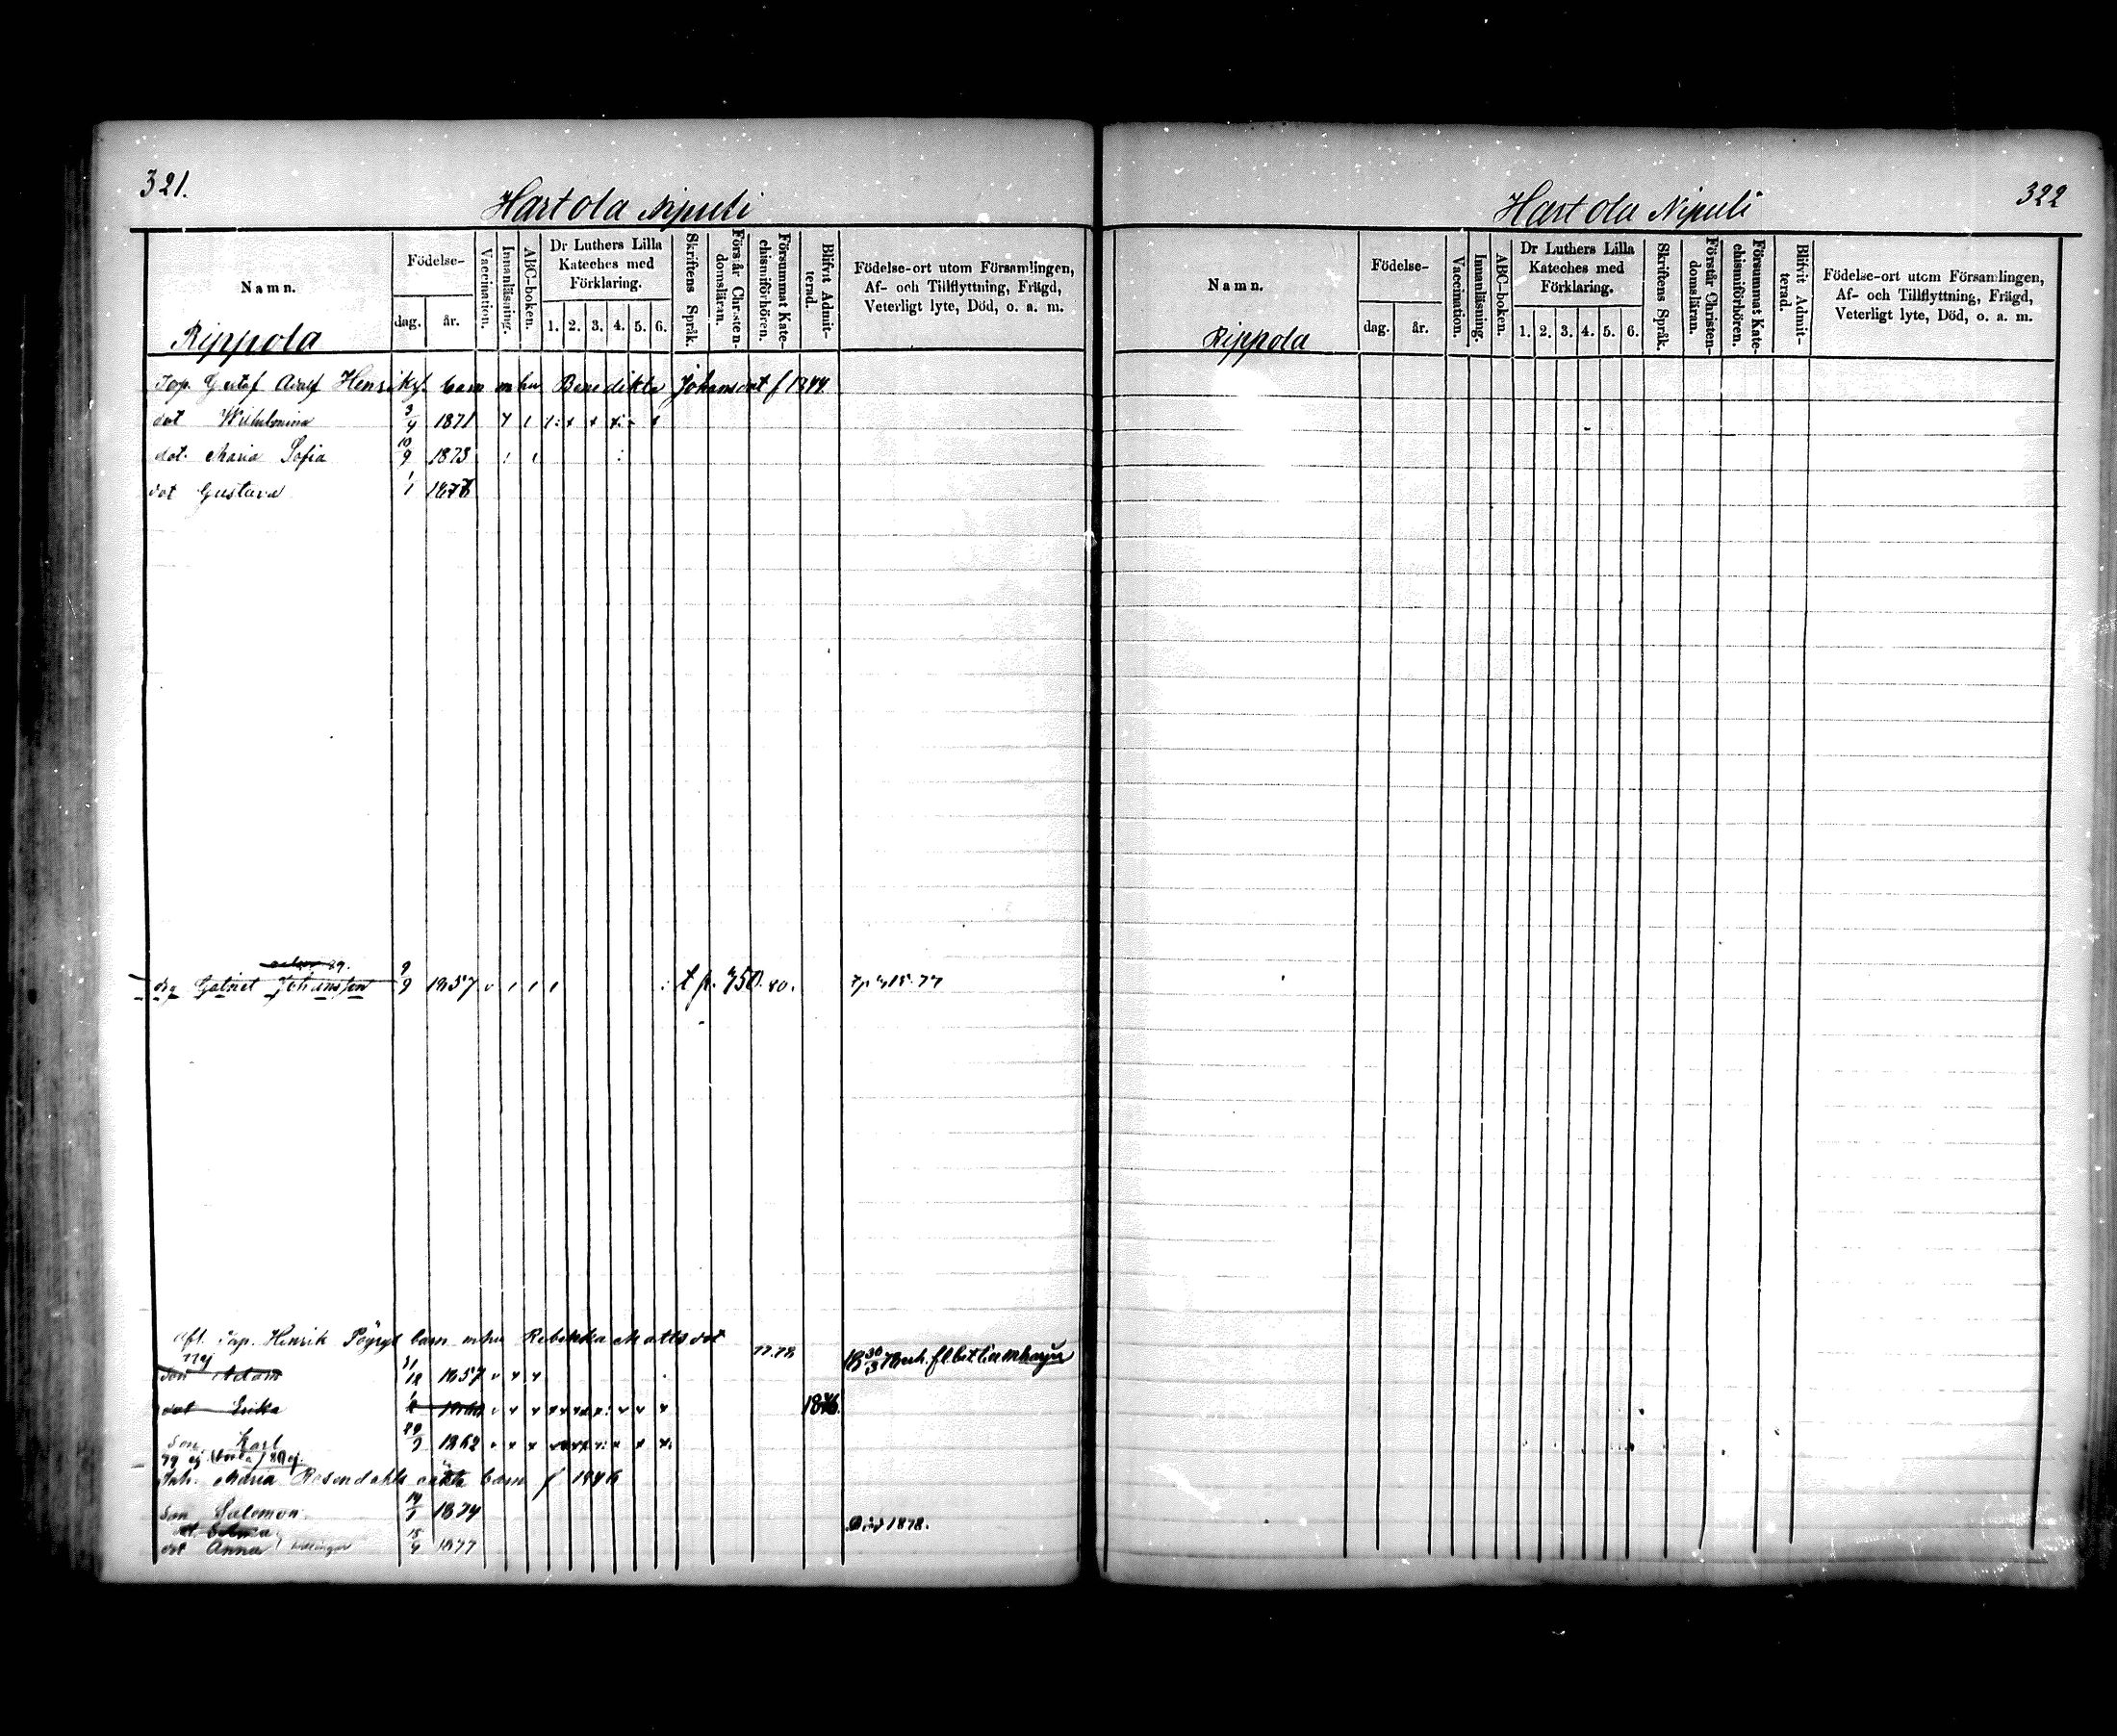 321.
Hartola Nipuli
Namn.
Födelse-
dag.
år.
Vaccination.
Innanläsning.
ABC-boken.
Dr Luthers Lilla
Kateches med
Förklaring.
1. 2. 3. 4. 5. 6.
Skriftens Språk.
Förstår Christen-
domsläran.
Försummat Kate-
chismiförhören.
Blifvit Admit-
terad.
Födelse-ort utom Församlingen,
Af- och Tillflyttning, Frägd,
Veterligt lyte, Död, o. a. m.
Rippola
Gustaf Adolf barn m hu Benedikta Johansdot f 1844.
dot Wilhelmina 3/4 1871
dot. Maria Sofia 10/9 1873
dot Gustava 1/1
drg Gabriel Johansson 9/9 1857 t p. 350. 80.
Henrik barn m hu Rebekka Mattsdot
77.78
son Adam 11/12 1857
dot Erika
son Karl 1862
Inh. Maria Rosendahls barn f
son Salomon 1874
Död 1878.
dot Anna 1877
322
Hartola Nipuli
Namn.
Födelse-
dag.
år.
Vaccination.
Innanläsning.
ABC-boken.
Dr Luthers Lilla
Kateches med
Förklaring.
1. 2. 3. 4. 5. 6.
Skriftens Språk.
Förstår Christen-
domsläran.
Försummat Kate-
chismiförhören.
Blifvit Admit-
terad.
Födelse-ort utom Församlingen,
Af- och Tillflyttning, Frägd,
Veterligt lyte, Död, o. a. m.
Rippola